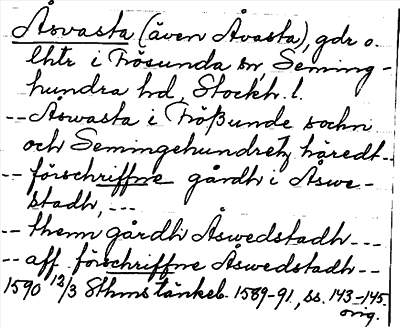 Åsvasta (även Åvasta), gdr o.
lhtr i Frösunda sn, Seming-
hundra hd, Stockh. l.
-- Åswasta i Frößunde sochn
och Semingehundretz häredt--
-- förschriffne gårdh i Åswe-
stadh, ---
-- them gårdh Åswedstadh ---
-- aff förschriffne Åswedstadh --
1590 12/3 Sthms tänkeb. 1589-91, ss. 143-145.
orig.